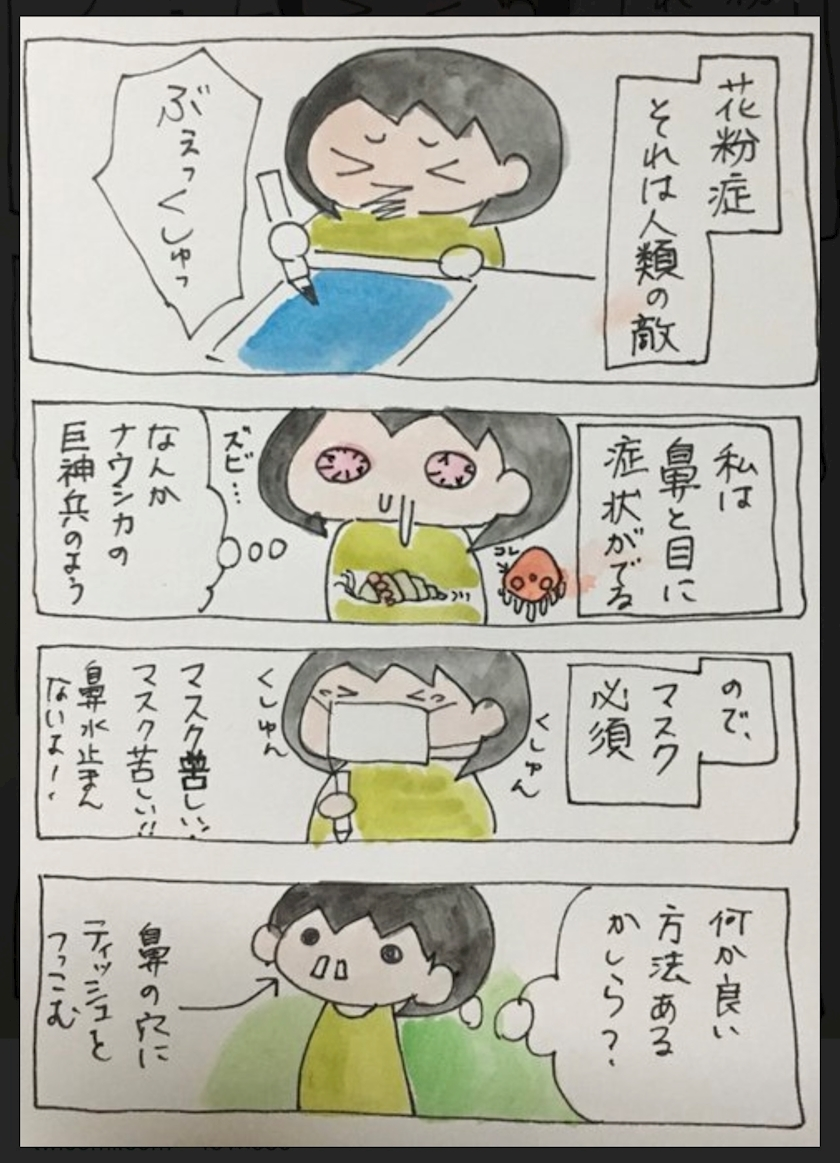 花粉症
それは人類の敵
ぶぇっくしゅっ
私は
鼻と目に
症状がでる
コレ
ズビ…
なんか
ナウシカの
巨神兵のよう
ので、
マスク
必須
くしゅん
くしゅん
マスク苦しい!!
マスク苦しい!!
鼻水止まん
ないよー!
何か良い
方法ある
かしら?
鼻の穴に
ティッシュを
つっこむ